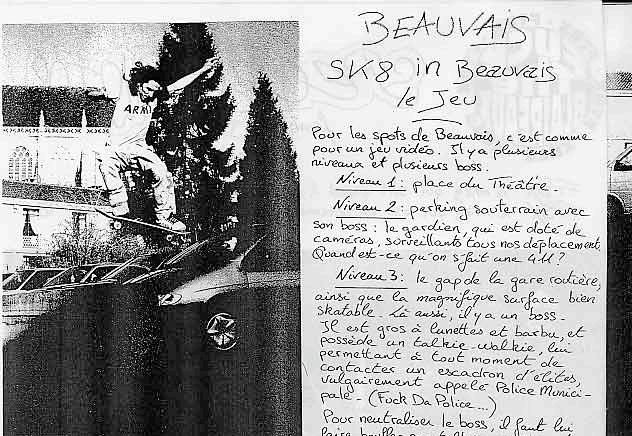 BEAUVAIS
SK8 in Beauvais
le Jeu
Pour les spots de Beauvais, c'est comme
pour un jeu vidéo. Il y a plusieurs
niveaux et plusieurs boss.
Niveau 1 : place du Théâtre.
Niveau 2 : parking souterrain avec
son boss : le gardien, qui est doté de
caméras, surveillants tous nos déplacement.
Quand est-ce qu'on s'fait une 4-11 ?
Niveau 3 : le gap de la gare routière,
ainsi que la magnifique surface bien
skatable. Là aussi, il y a un boss.
Il est gros à lunettes et barbu, et
possède un talkie-walkie, lui
permettant à tout moment de
contacter un escadron d'élites,
vulgairement appelé Police Munici-
pale - (Fuck Da Police...)
Pour neutraliser le boss, il faut lui
faire
ARMY